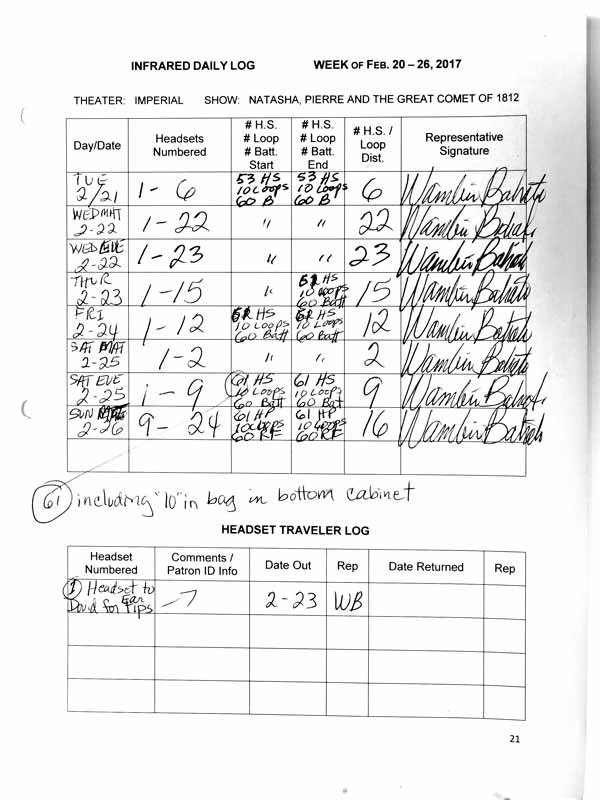 INFRARED DAILY LOG WEEK OF FEB. 20 – 26, 2017
THEATER: IMPERIAL SHOW: NATASHA, PIERRE AND THE GREAT COMET OF 1812
Day/Date Headsets Numbered # H.S. # Loop # Batt. Start # H.S. # Loop # Batt. End # H.S. / Loop Dist. Representative Signature
TUE 2/21 1-6 53 HS 10 Loops 60 B 53 HS 10 Loops 60 B 6
WED MAT 2-22 1-22 " " 22
WED EVE 2-22 1-23 " " 23
THUR 2-23 1-15 " 52 HS 10 Loops 60 Batt 15
FRI 2-24 1-12 HS 10 Loops 60 Batt HS 10 Loops 60 Batt 12
SAT MAT 2-25 1-2 " " 2
SAT EVE 2-25 1-9 61 HS 10 Loops 60 Bat 61 HS 10 Loops 60 Bat 9
SUN 2-26 9-24 61 HP 10 Loops 60 RF 61 HP 10 Loops 60 RF 16
61 including "10" in bag in bottom cabinet
HEADSET TRAVELER LOG
Headset Numbered Comments / Patron ID Info Date Out Rep Date Returned Rep
1 Headset to David for Ear Tips 2-23 WB
21